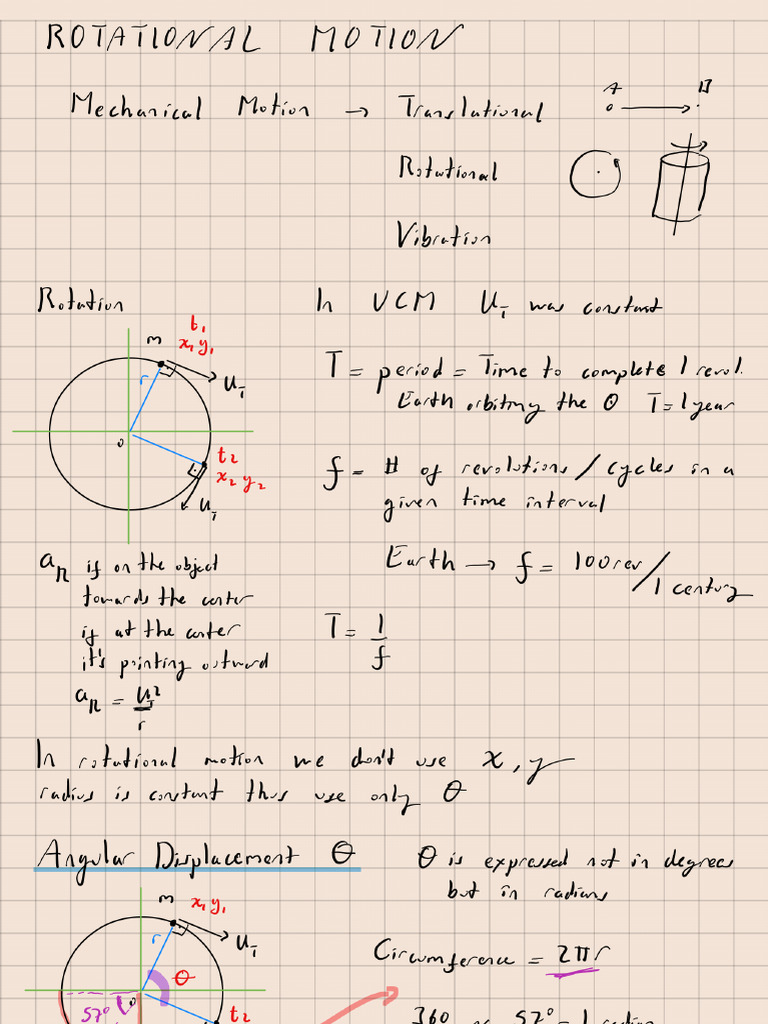 ROTATIONAL MOTION
Mechanical Motion → Translational
A B
Rotational
Vibration
Rotation
In UCM U_T was constant
m t₁
x₁ y₁
r U_T
T = period = Time to complete 1 revol.
Earth orbiting the ʘ T=1 year
o t₂
x₂ y₂
U_T
f = # of revolutions/cycles in a
given time interval
Earth → f = 100rev/1 century
a_R if on the object
towards the center
if at the center
it's pointing outward
a_R = U_T²/r
T = 1/f
In rotational motion we don't use x, y
radius is constant thus use only θ
Angular Displacement θ
θ is expressed not in degrees
but in radians
m x₁ y₁
r U_T
θ
o
57°
t₂
Circumference = 2πr
360 57° = 1 radian